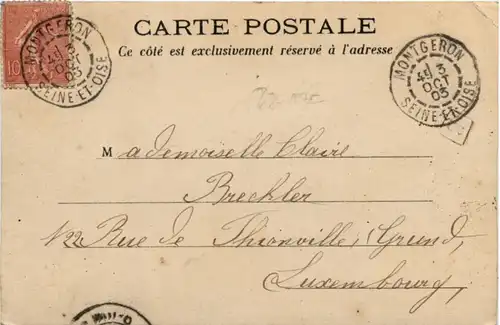 CARTE POSTALE
Ce côté est exclusivement réservé à l'adresse
MONTGERON
3
OCT
03
SEINE-ET-OISE
MONTGERON
3
OCT
03
SEINE-ET-OISE
10
Mademoiselle Claire
Breckler
122 Rue de Thionville, (Grund,
Luxembourg,